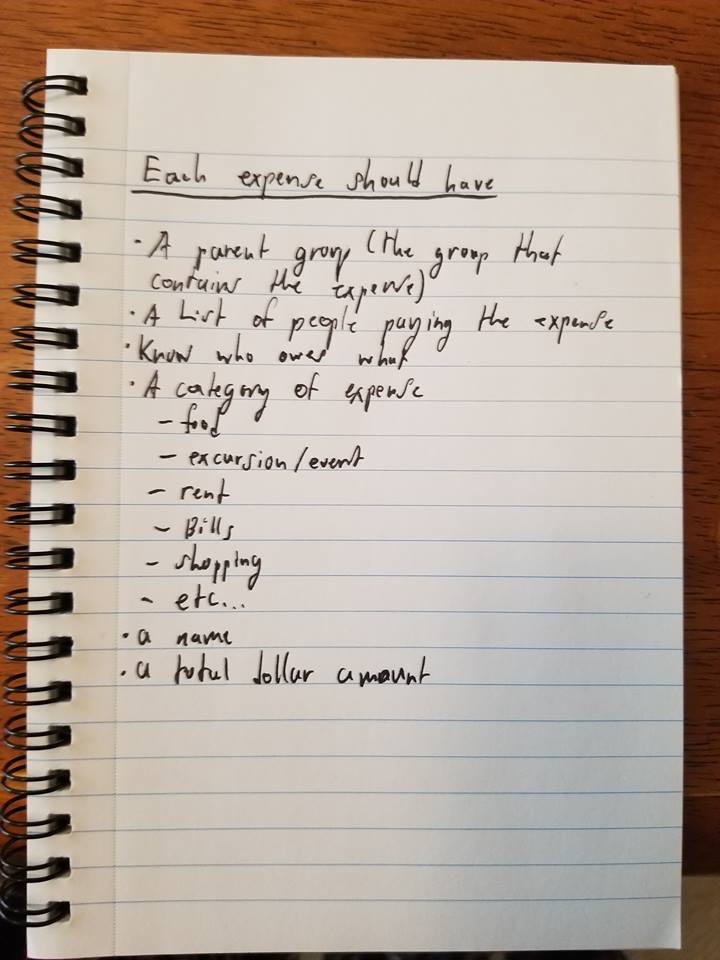 Each expense should have
· A parent group (the group that
contains the expense)
· A List of people paying the expense
· Know who owes what
· A category of expense
– food
– excursion/event
– rent
– Bills
– shopping
– etc...
· a name
· a total dollar amount